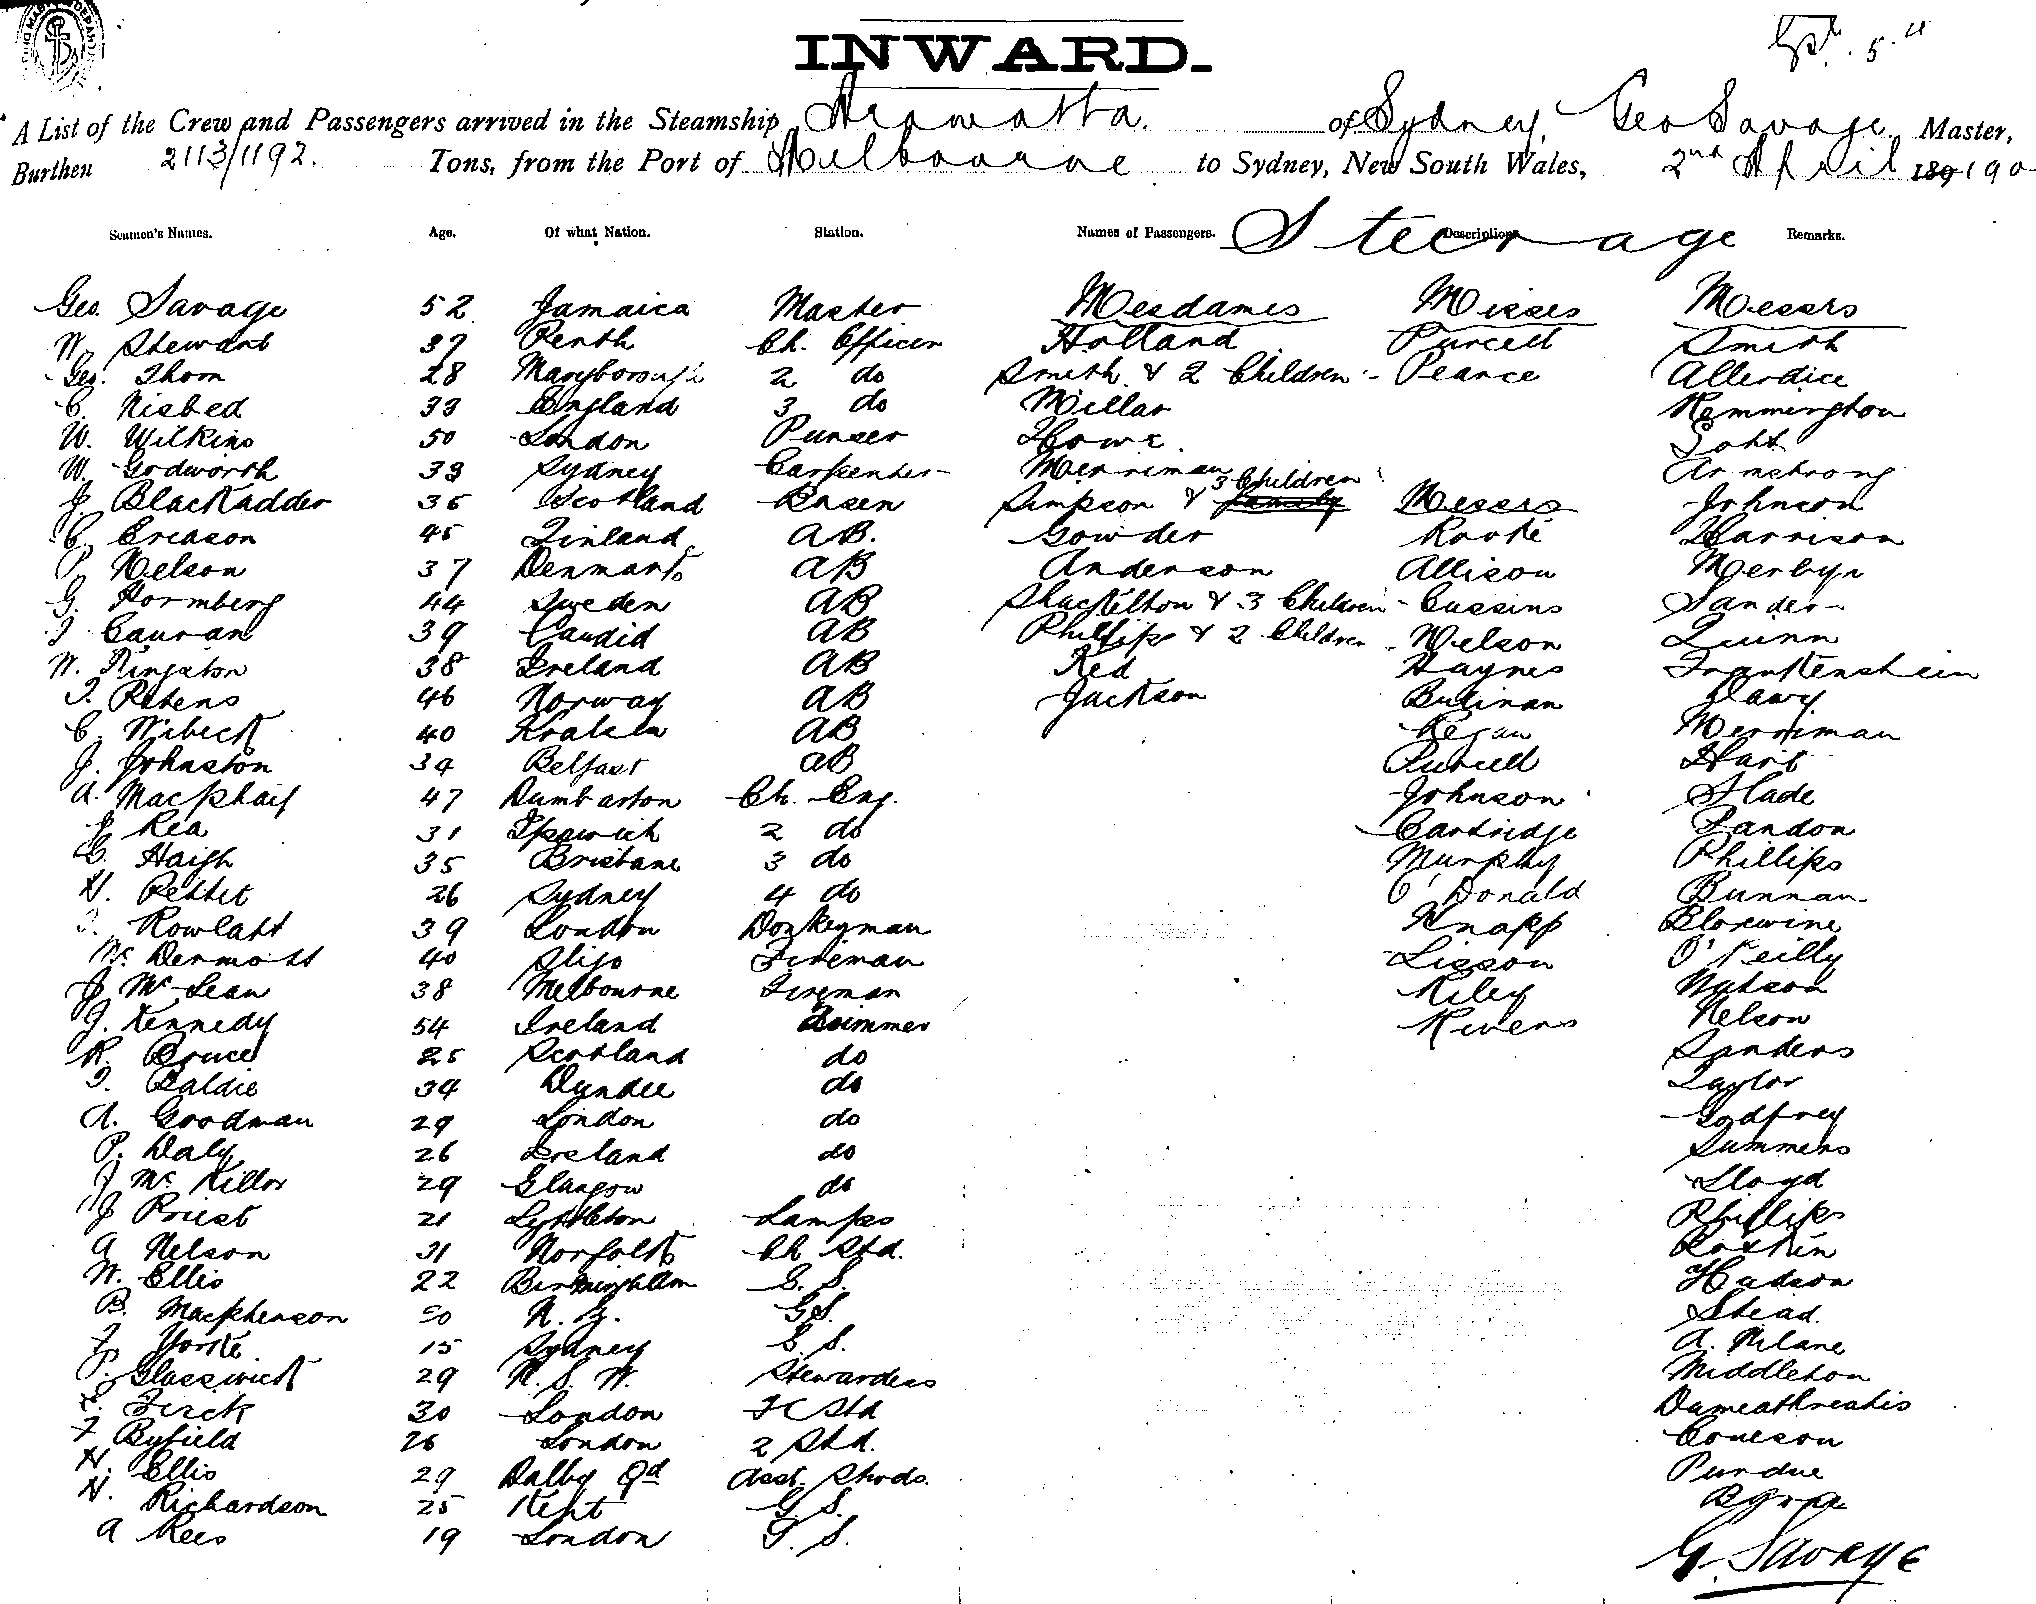 INWARD.
A List of the Crew and Passengers arrived in the Steamship Aramatta. of Sydney, Geo Savage Master,
Burthen 2113/1192. Tons, from the Port of Melbourne to Sydney, New South Wales, 2nd April 189 190
Seamen's Names. Age. Of what Nation. Station. Names of Passengers. Description. Steerage Remarks.
Geo. Savage 52 Jamaica Master Mesdames Misses Messrs
W. Stewart 37 Perth Ch. Officer Holland Purcell Smith
Geo. Thom 28 Maryborough 2 do Smith & 2 Children - Pearce Allerdice
C. Nisbed 33 England 3 do Millar Remmington
W. Wilkins 50 London Purser Howe
W. Godworth 33 Sydney Carpenter Merriman Armstrong
J. Blackadder 36 Scotland Bosen Simpson & 3 Children family Messrs Johnson
C. Ericson 45 Finland AB. Gowder Rooke Harrison
P. Nelson 37 Denmark AB Anderson Allison Merbyn
G. Hormberg 44 Sweden AB Shackelton & 3 Children - Cussins Sander
J. Cauran 39 AB Phillips & 2 Children - Nelson Quinn
W. Kingston 38 Ireland AB Ked Haynes Frankenstein
J. Petens 46 Norway AB Jackson Butinan Davy
C. Wibeck 40 AB Regan Merriman
J. Johnston 34 Belfast AB Purcell Hart
A. Macphail 47 Dumbarton Ch. Eng. Johnson Slade
J Rea 31 Ipswich 2 do Cartridge Landon
C. Haigh 35 Brisbane 3 do Murphy Phillips
H. Pettit 26 Sydney 4 do O'Donald Bunnan
J. Rowlatt 39 London Donkeyman Knapp Blorwine
Mc Dermott 40 Sligo Fireman Lisson O'Reilly
J Mc Lean 38 Melbourne Fireman Riley Watson
J. Kennedy 54 Ireland Trimmer Rivers Nelson
R. Bruce 25 Scotland do Sanders
J. Baldie 34 Dundee do Taylor
A. Goodman 29 London do Godfrey
P. Daly 26 Ireland do Summers
J Mc Killor 29 Glasgow do Lloyd
J Priest 21 Lyttleton Lamps Phillips
A Nelson 31 Norfolk Ch Std. Rotkin
W. Ellis 22 Birmingham G. S. Hudson
B. Macpherson 50 N. Z. G S. Stead
F. Yorke 15 Sydney G. S. A. Milane
P. Glasswick 29 N. S. W. Stewardess Middleton
Firck 30 London F C Std Dameathreatis
F Byfield 26 London 2 Std. Coulson
H. Ellis 29 Dalby Qd Asst. Stwds. Purdue
H. Richardson 25 Kent G S.
A Rees 19 London G. S.
G. Savage